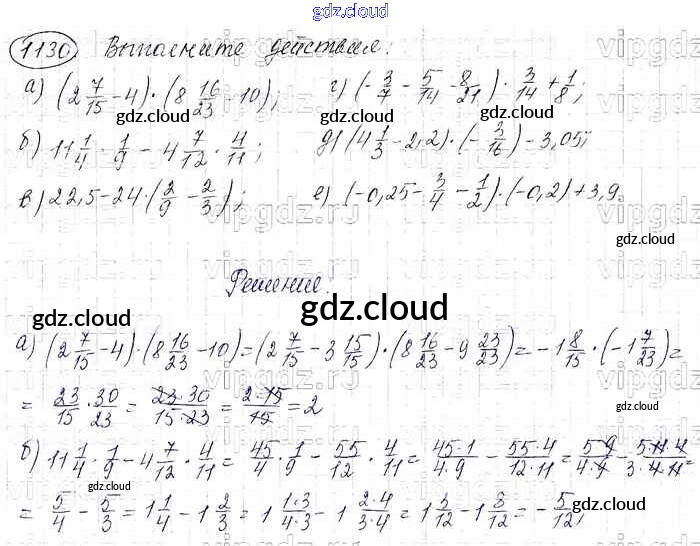 gdz.cloud
1130. Выполните действия:
а) (2 7/15 − 4) · (8 16/23 − 10); г) (− 3/7 − 5/14 − 8/21) · 3/14 + 1/8;
б) 11 1/4 · 1/9 − 4 7/12 · 4/11; д) (4 1/3 − 2,2) · (− 3/16) − 3,05;
в) 22,5 − 24 · (2/9 − 2/3); е) (−0,25 − 3/4 − 1/2) · (−0,2) + 3,9.
Решение:
gdz.cloud
а) (2 7/15 − 4) · (8 16/23 − 10) = (2 7/15 − 3 15/15) · (8 16/23 − 9 23/23) = −1 8/15 · (−1 7/23) =
= 23/15 · 30/23 = 23·30/15·23 = 2·15/15 = 2
б) 11 1/4 · 1/9 − 4 7/12 · 4/11 = 45/4 · 1/9 − 55/12 · 4/11 = 45·1/4·9 − 55·4/12·11 = 5·9/4·9 − 5·11·4/3·4·11 =
= 5/4 − 5/3 = 1 1/4 − 1 2/3 = 1 1·3/4·3 − 1 2·4/3·4 = 1 3/12 − 1 8/12 = − 5/12;